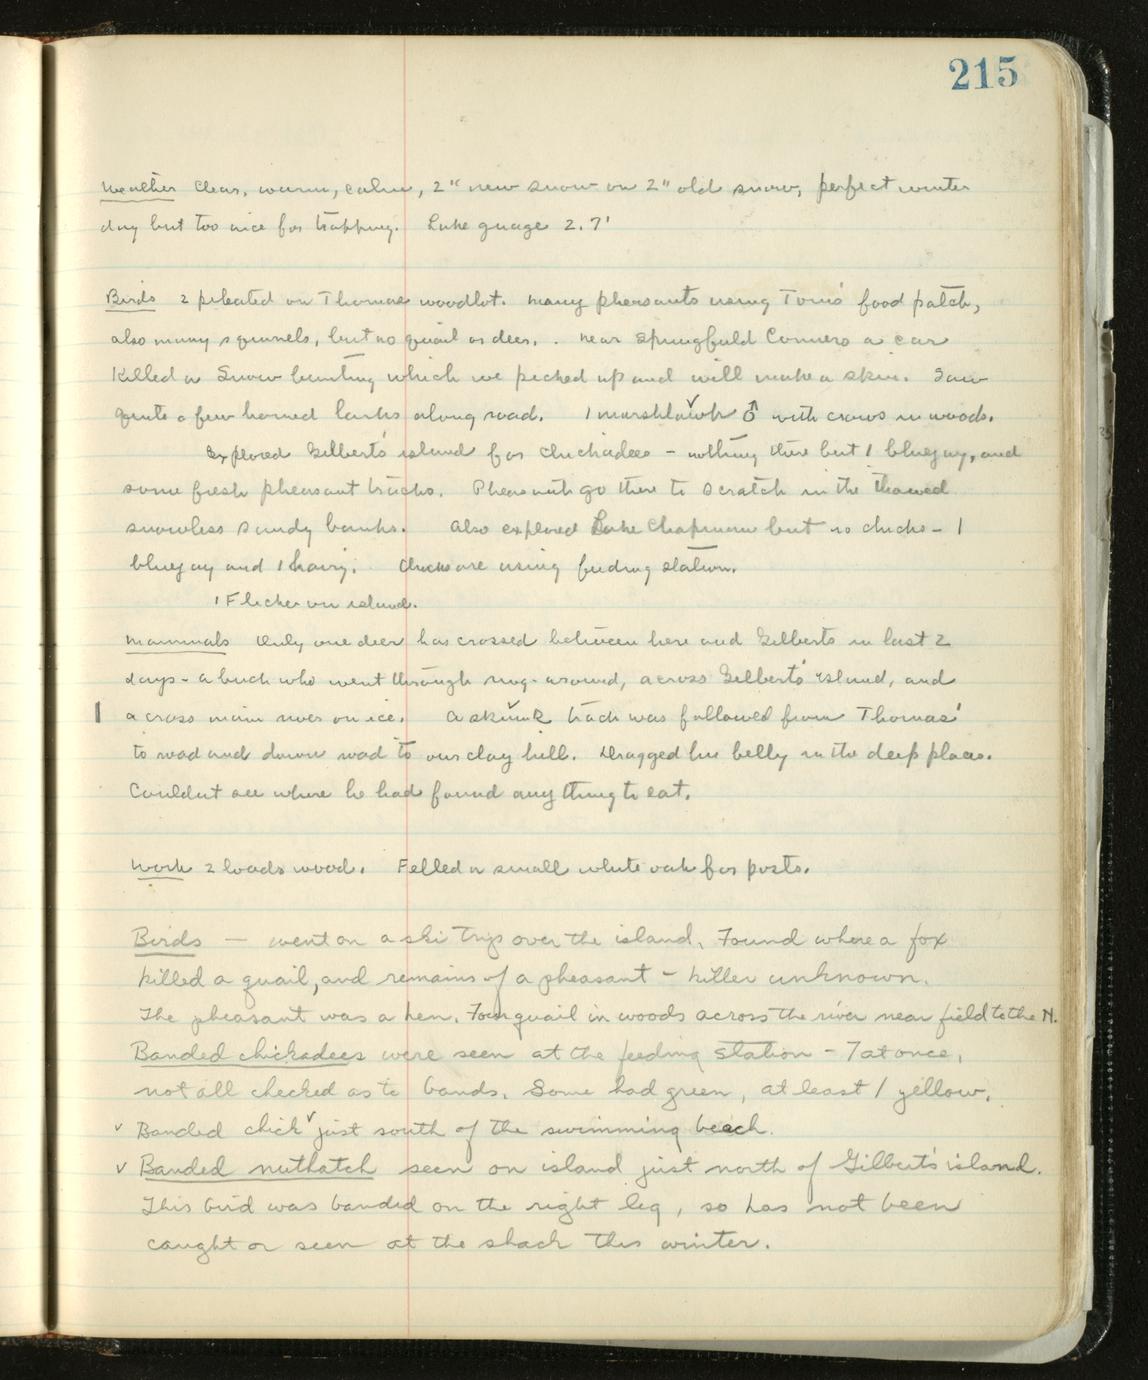 215
Weather Clear, warm, calm, 2" new snow on 2" old snow, perfect winter
day but too nice for trapping. Lake guage 2.7'
Birds 2 pileated on Thomas woodlot. Many pheasants using Tom's food patch,
also many squirrels, but no quail or deer. . Near Springfield Corners a car
killed a Snow bunting which we picked up and will make a skin. Saw
quite a few horned larks along road. 1 marshhawk ♂ with crows in woods.
Explored Gilbert's island for chickadees - nothing there but 1 bluejay, and
some fresh pheasant tracks. Pheasants go there to scratch in the thawed
snowless sandy banks. Also explored Lake Chapman but no chicks - 1
bluejay and 1 hairy. Chicks are using feeding station.
1 Flicker on island.
Mammals Only one deer has crossed between here and Gilberts in last 2
days - a buck who went through ring-around, across Gilberts' island, and
across main river on ice. A skunk track was followed from Thomas'
to road and down road to our clay hill. Dragged his belly in the deep places.
Couldnt see where he had found anything to eat.
Work 2 loads wood. Felled a small white oak for posts.
Birds — went on a ski trip over the island. Found where a fox
killed a quail, and remains of a pheasant - killer unknown.
The pheasant was a hen. Four quail in woods across the river near field to the N.
Banded chickadees were seen at the feeding station - 7 at once,
not all checked as to bands. Some had green, at least 1 yellow.
✓ Banded chick ✓ just south of the swimming beach.
✓ Banded nuthatch seen on island just north of Gilbert's island.
This bird was banded on the right leg, so has not been
caught or seen at the shack this winter.